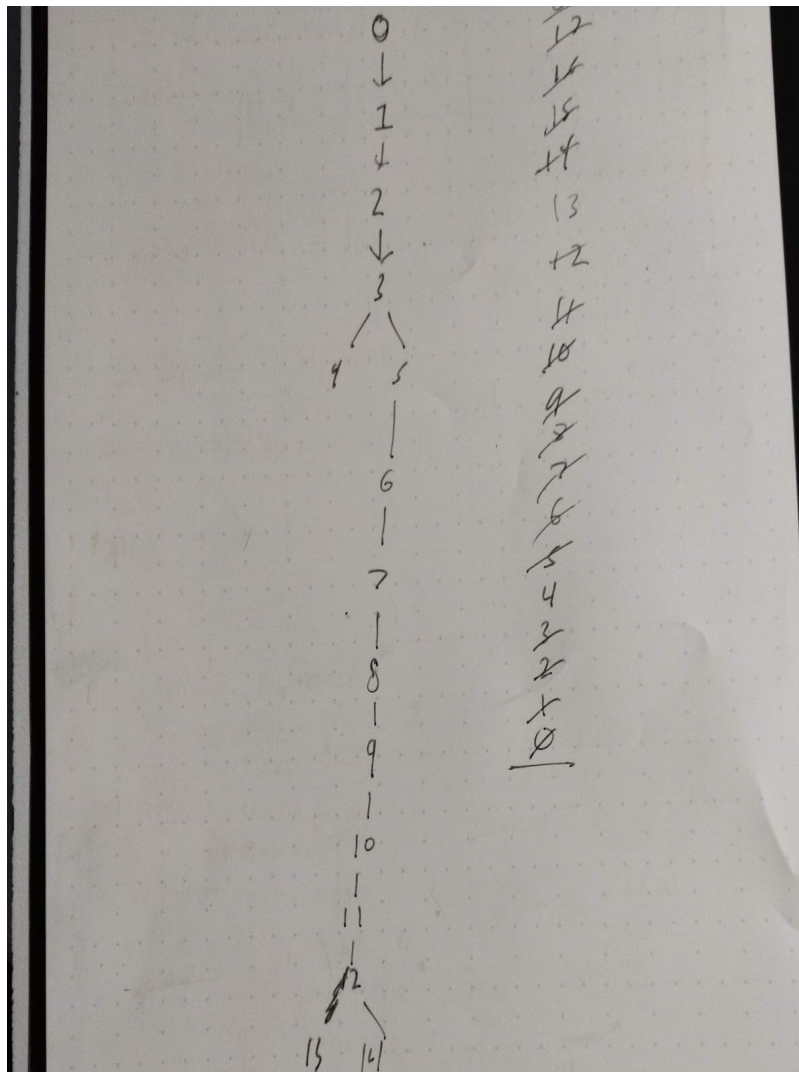 0
1
2
3
4 5
6
7
8
9
10
11
12
13 14
17
16
15
14
13
12
11
10
9
8
7
6
5
4
3
2
1
0